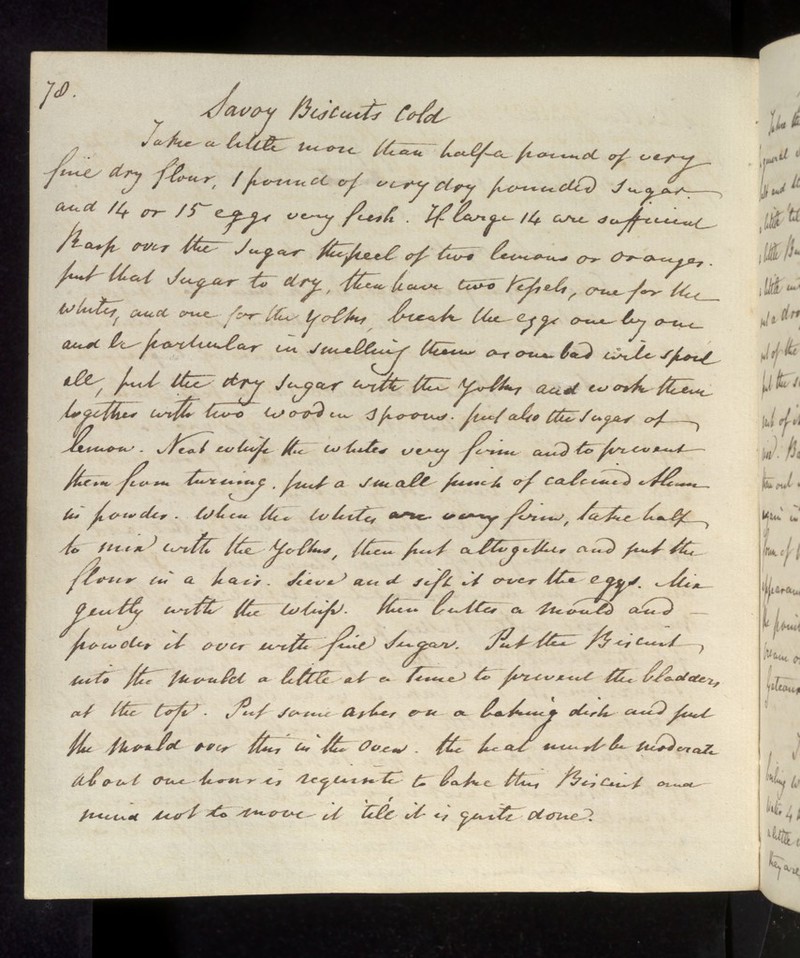 78.
Savoy Biscuits Cold
Take a little more than half a pound of very
fine dry flour, 1 pound of very dry pounded Sugar
and 14 or 15 eggs very fresh. If large 14 are sufficient
Rasp over the Sugar the peel of two lemons or oranges.
put that Sugar to dry, then have two Vessels, one for the
whites, and one for the yolks, break the eggs one by one
and be particular in smelling them as one bad will spoil
all, put the dry Sugar with the Yolks and work them
together with two wooden spoons. put also the Sugar of
lemon. Next whip the whites very firm and to prevent
them from turning. put a small pinch of calcined Alum
in powder. When the whites are very firm, take half
to mix with the Yolks, then put altogether and put the
flour in a hair. Sieve and sift it over the eggs. Mix
gently with the whip. then butter a mould and
powder it over with fine Sugar. Put the Biscuit
into the mould a little at a time to prevent the bladders
at the top. Put some ashes on a baking dish and put
the mould over this in the Oven. the heat must be moderate
about one hour is requisite to bake this Biscuit and
mind not to move it 'till it is quite done.